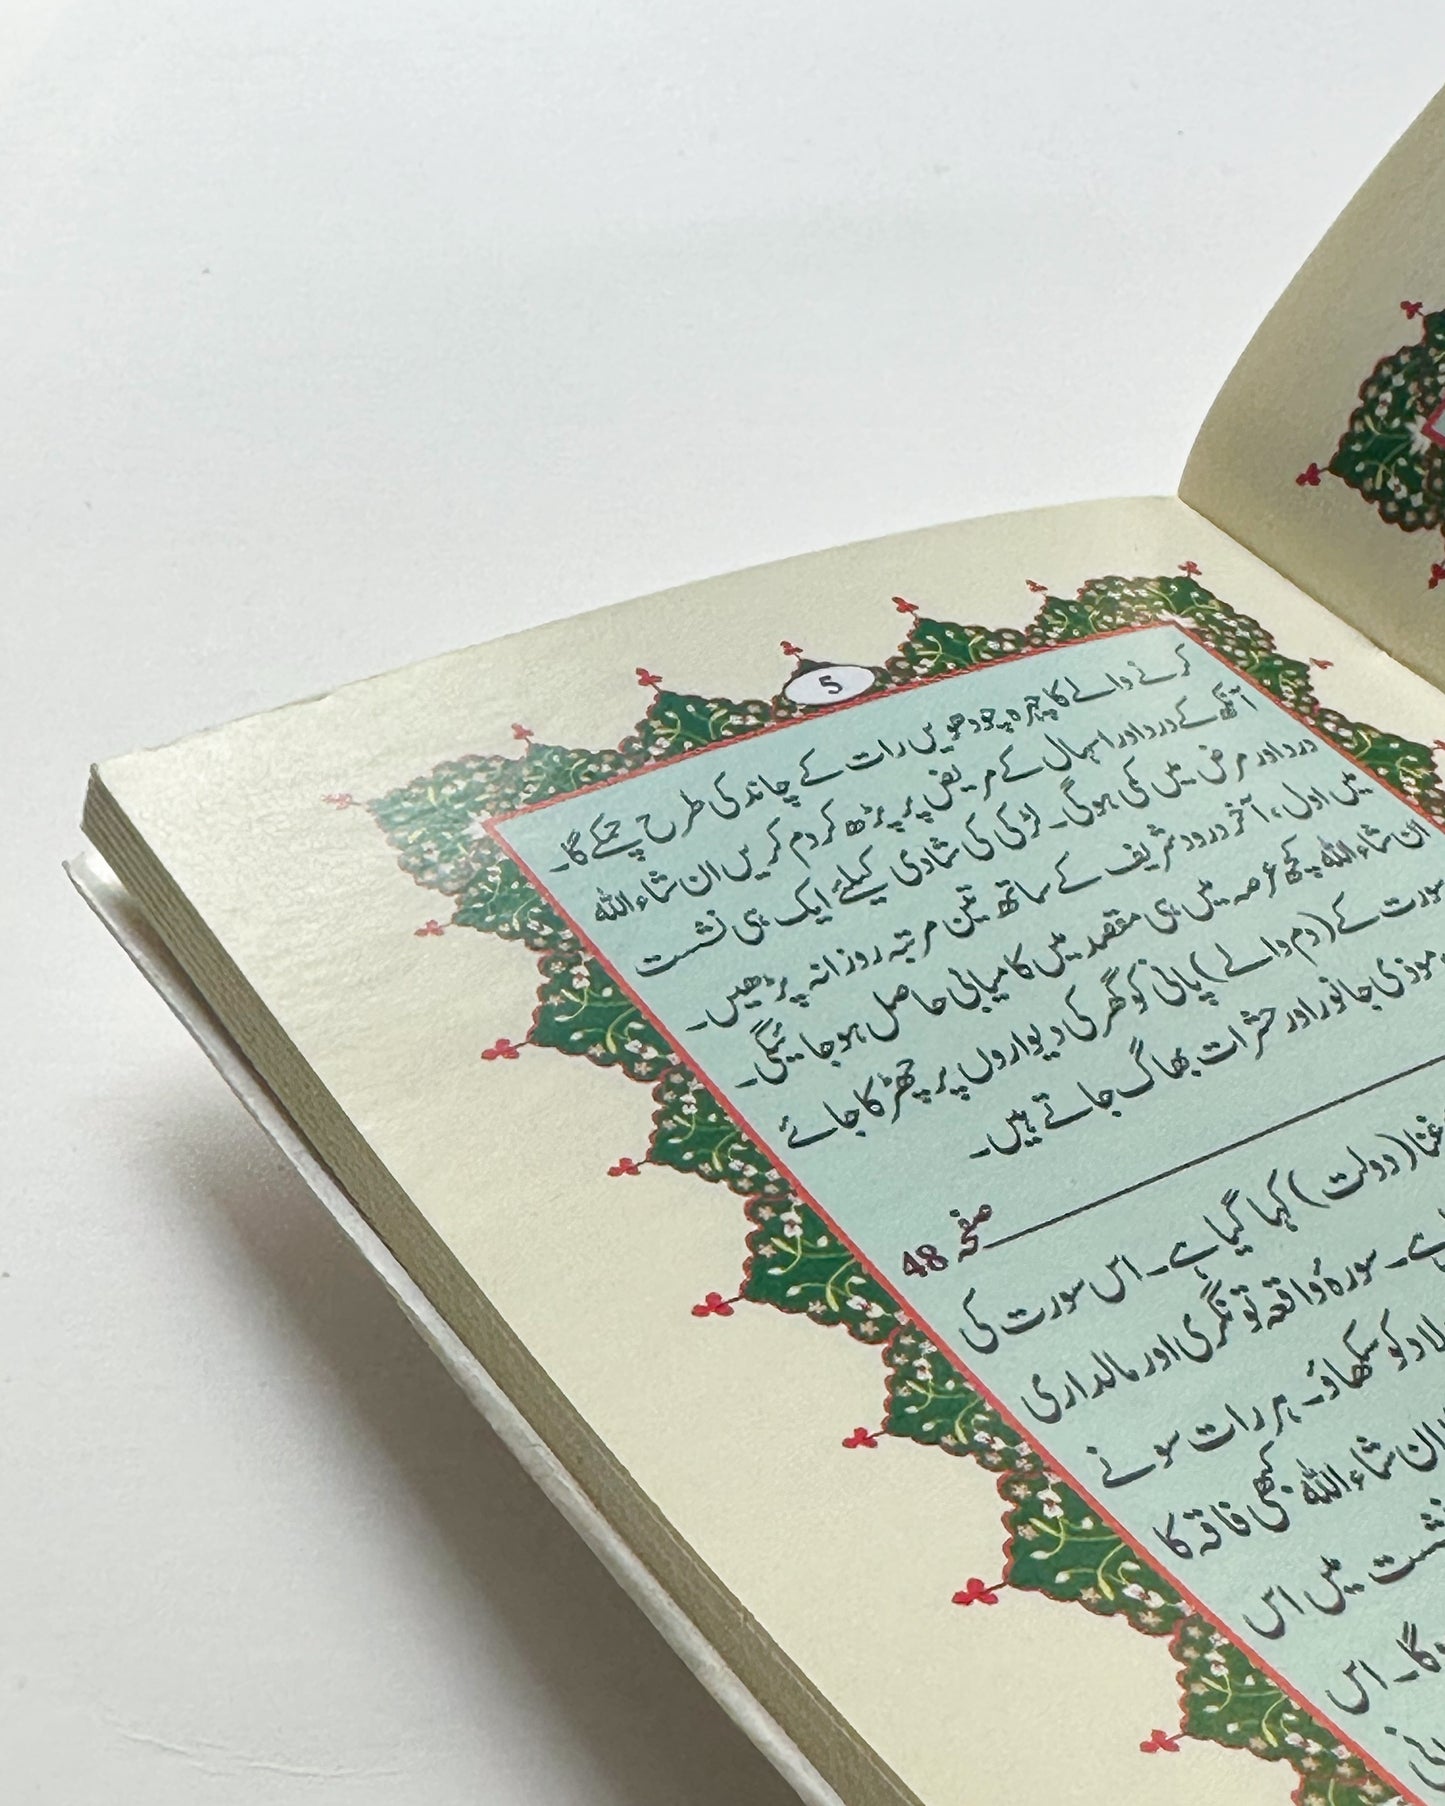 5
کرنے والے کا چہرہ چودھویں رات کے چاند کی طرح چمکے گا۔
آنکھ کے درد اور اسہال کے مریض پر پڑھ کر دم کریں ان شاء اللہ
درد اور مرض میں کمی ہوگی۔ لڑکی کی شادی کیلئے ایک ہی نشست
میں اول، آخر درود شریف کے ساتھ تین مرتبہ روزانہ پڑھیں۔
ان شاء اللہ کچھ عرصہ میں ہی مقصد میں کامیابی حاصل ہوجائیگی۔
سورت کے (دم والے) پانی کو گھر کی دیواروں پر چھڑکا جائے
موذی جانور اور حشرات بھاگ جاتے ہیں۔
صفحہ 48
غنا (دولت) کہا گیا ہے۔ اس سورت کی
ہے۔ سورہ واقعہ تونگری اور مالداری
کو سکھاؤ۔ ہر رات سونے
ان شاء اللہ کبھی فاقہ کا
میں اس
گا۔ اس